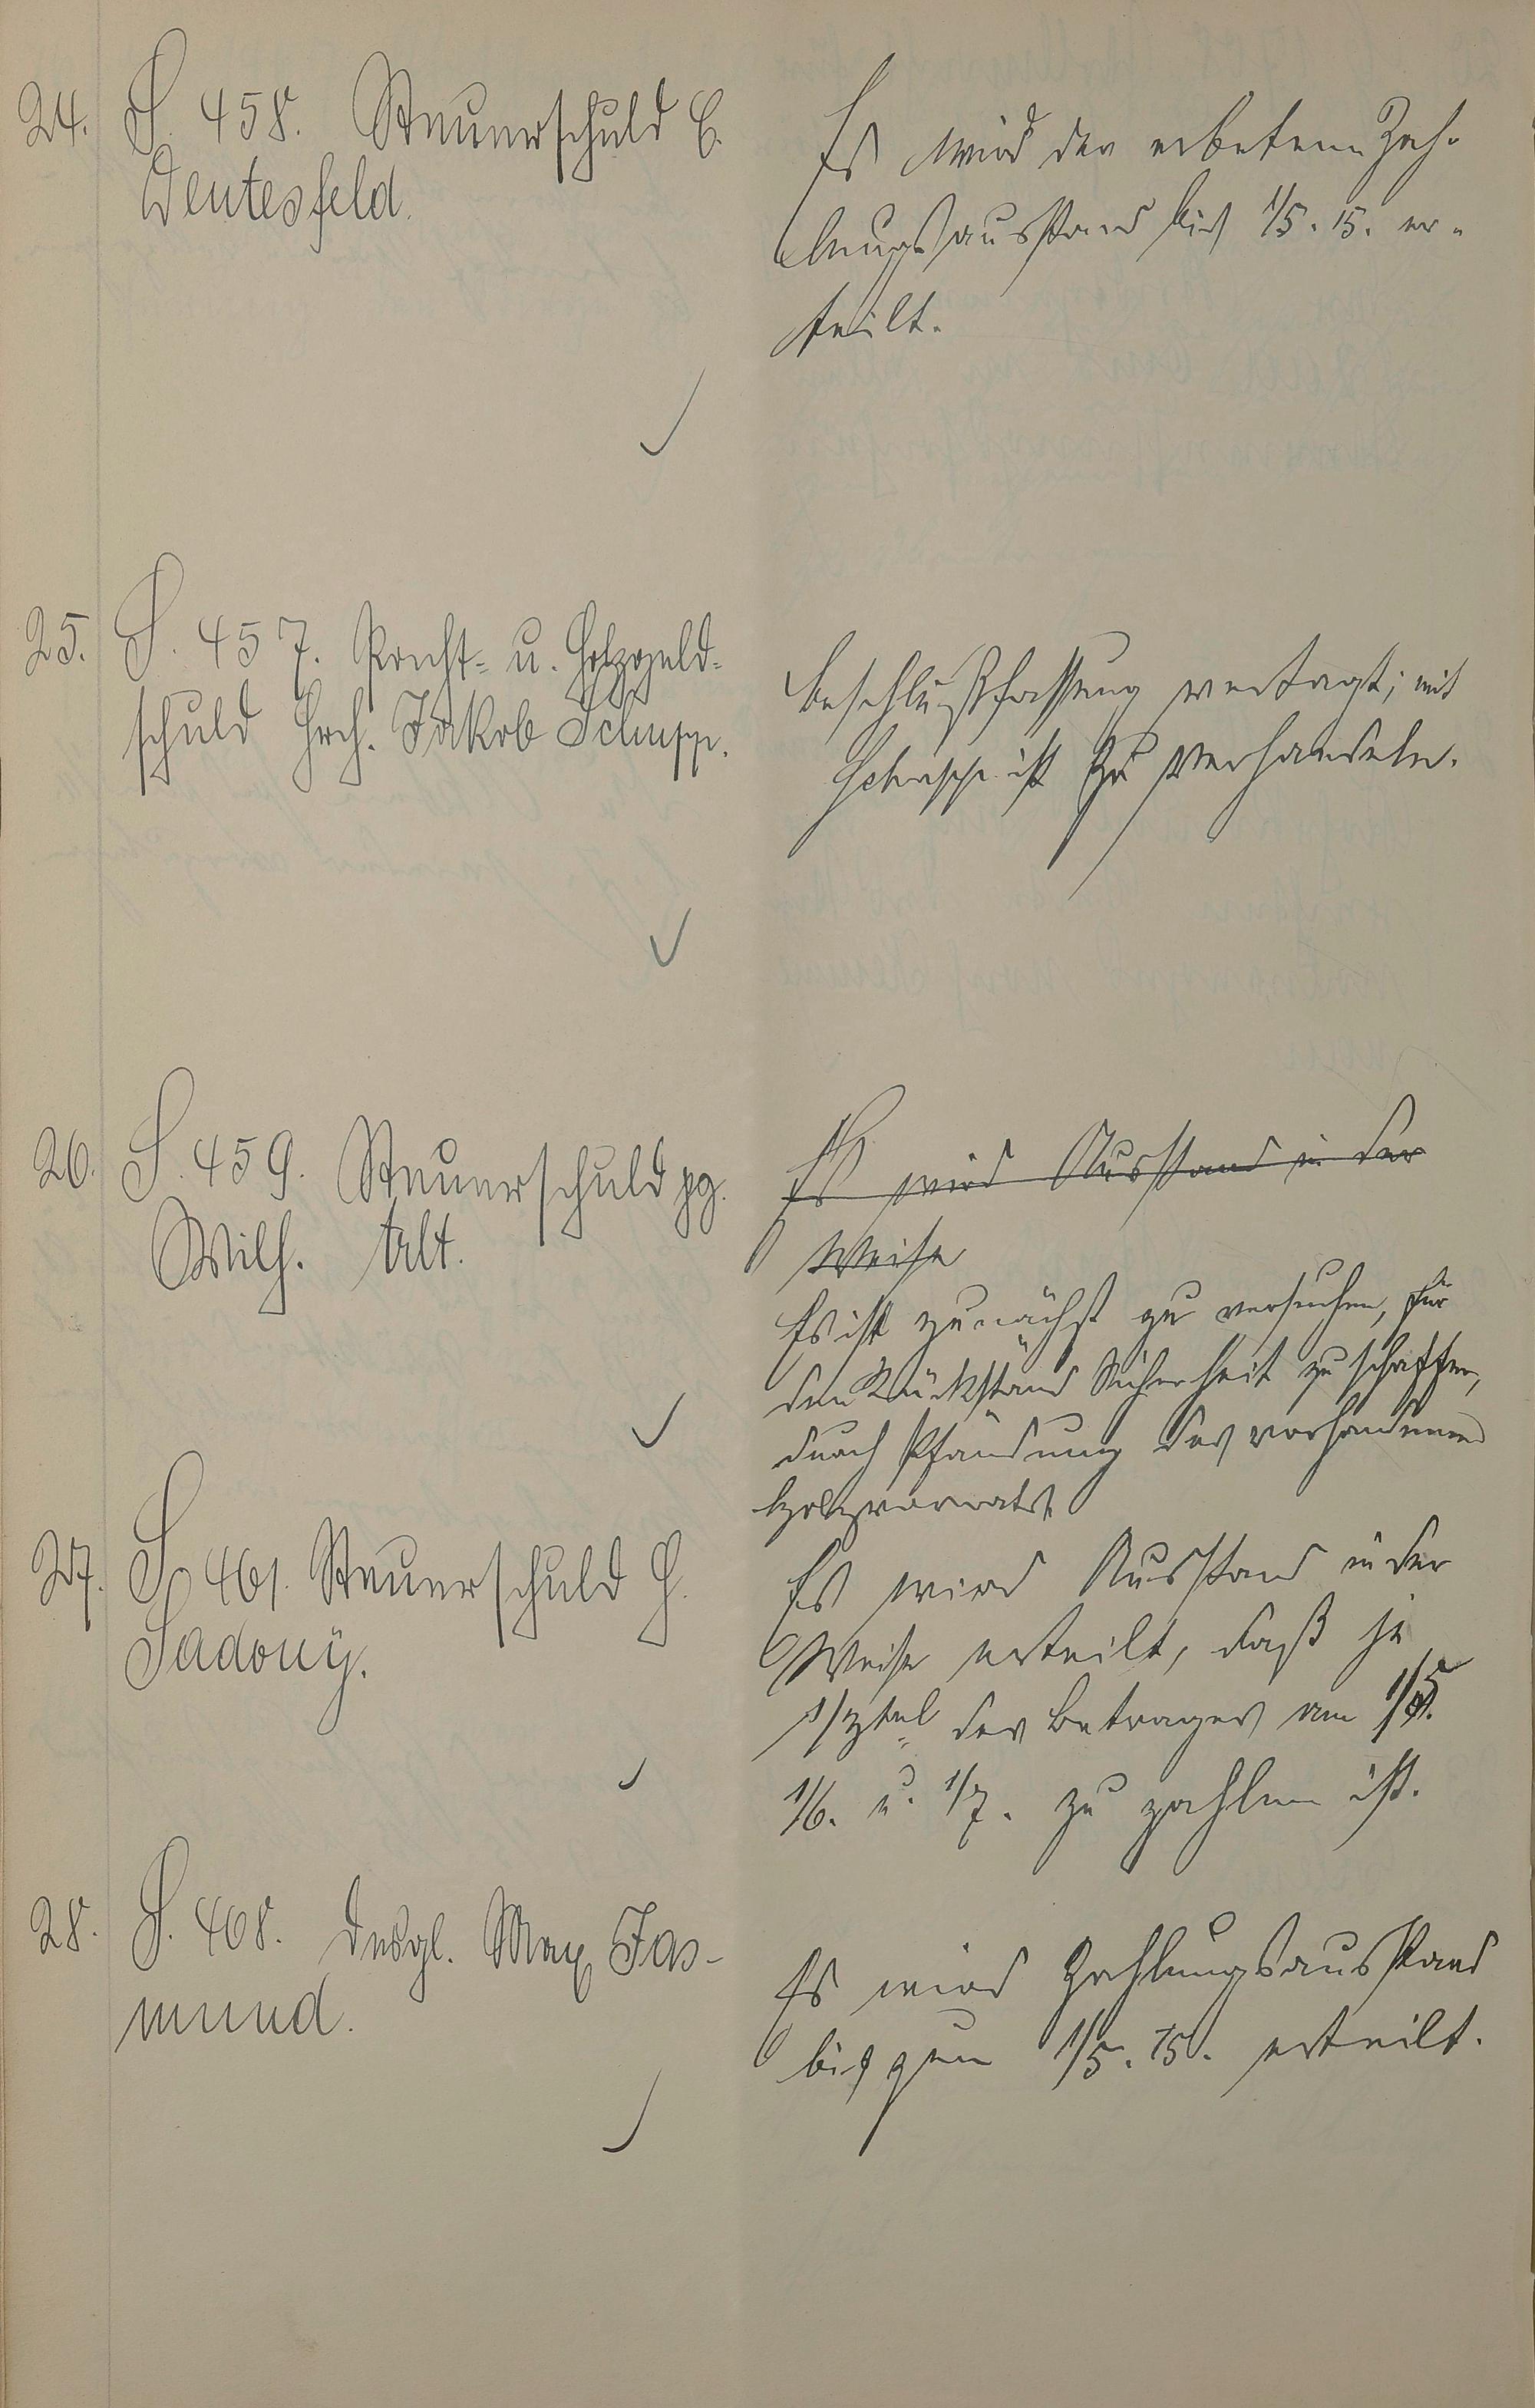 24. S. 458. Steuerschuld E.
Deutesfeld.
Es wird der erbetene Zah-
lungsausstand bis 1/5. 15. er-
teilt.
25. S. 457. Pacht- u. Holzgeld-
schuld Hrch. Jakob Schupp.
Beschlußfassung vertagt; mit
Schupp ist zu verhandeln.
26. S. 459. Steuerschuld pg.
Wilh. Alt.
Es wird Ausstand in der
Weise
Es ist zunächst zu versuchen, für
den Rückstand Sicherheit zu schaffen,
durch Pfändung des vorhandenen
Holzvorrats.
27. S. 461. Steuerschuld H.
Sadony.
Es wird Ausstand in der
Weise erteilt, daß je
1/3tel des Betrages am 1/5.
1/6. u. 1/7. zu zahlen ist.
28. S. 468. Desgl. Max Jas-
mund.
Es wird Zahlungsausstand
bis zum 1/5. 15. erteilt.